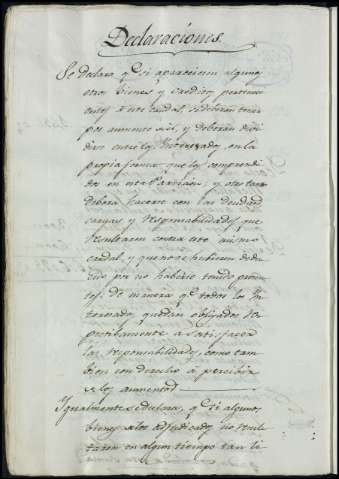 Declaraciones
Se declara q.e si aparecieren algunos
otros bienes y creditos pertenecientes
a este caudal, se deberan tener
por aumento de el, y deberan divi-
dirse entre los Interesados, en la
propia forma, que los comprendi-
dos en esta Particion; y otro tanto
debera hacerse con las deudas,
cargas y responsabilidades, que
resultaren contra este mismo
caudal, y que no se hubiesen dedu-
cido por no haberse tenido presen-
tes; de manera q.e todos los In-
teresados, quedan obligados res-
pectivamente a satisfacer
las responsabilidades, como tam-
bien con derecho a percibir
los aumentos
Igualmente se declara, q.e si algunos
bienes de los adjudicados no resul-
taren en algun tiempo tan li-